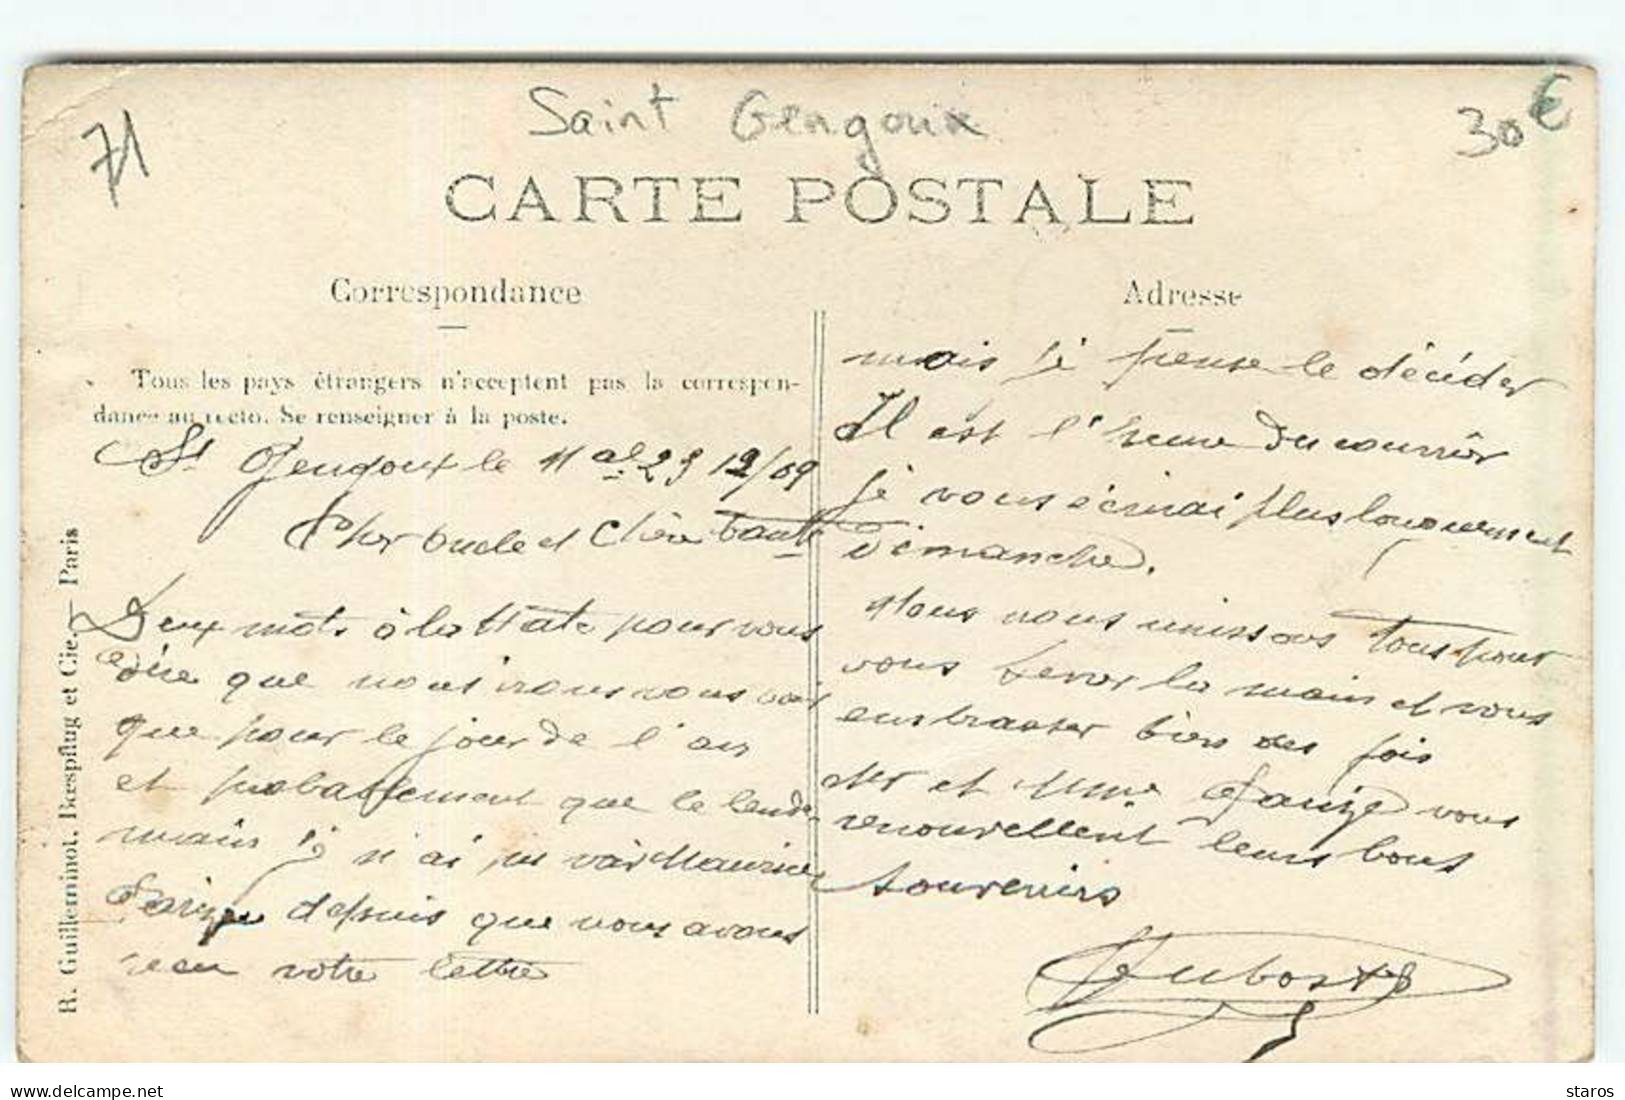 71
Saint Gengoux
30€
CARTE POSTALE
Correspondance
Tous les pays étrangers n'acceptent pas la correspon-
dance au recto. Se renseigner à la poste.
St Gengoux le 12/09
Cher Oncle et Chère Tante
Deux mots à la Hate pour vous
dire que nous irons vous voir
que pour le jour de l'an
et probablement que le lende-
main je n'ai pu voir Maurice
depuis que nous avons
recu votre lettre
Adresse
mais je pense le décider
Il est l'heure du courrier
je vous écrirai plus longuement
Dimanche.
Nous nous unissons tous pour
vous serrer la main et vous
embrasser bien des fois
Mr et Mme vous
renouvellent leurs bons
souvenirs
Dubost
R. Guilleminot, Bœspflug et Cie. — Paris
www.delcampe.net
staros